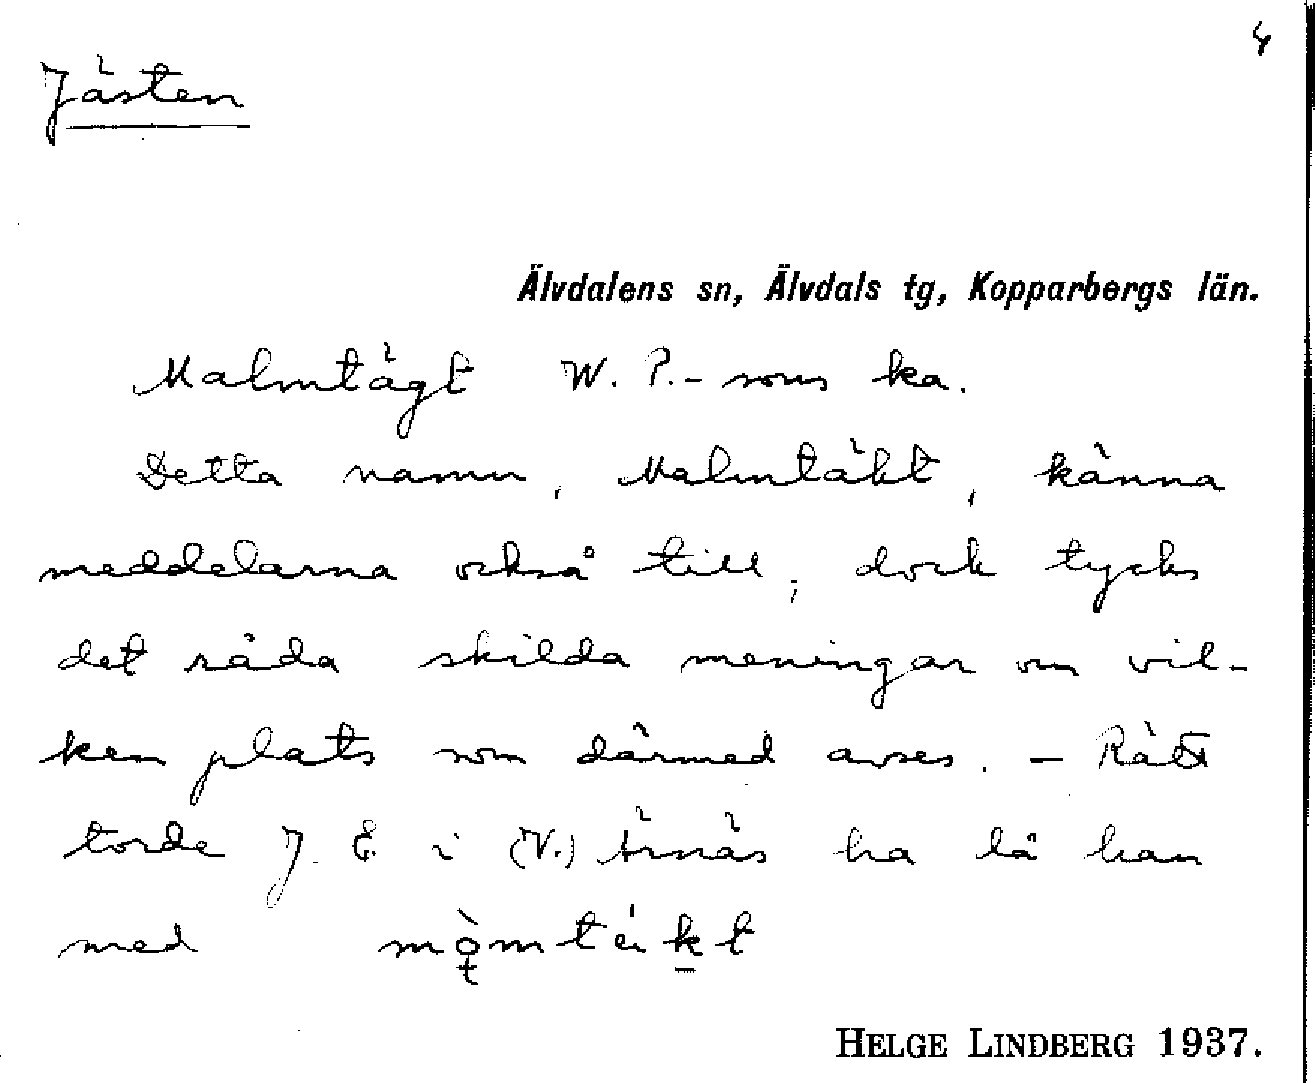 4
Jästen
Älvdalens sn, Älvdals tg, Kopparbergs län.
Malmtägt W. P.-sons ka.
Detta namn, Malmtäkt, känna
meddelarna också till, dock tycks
det råda skilda meningar om vil-
ken plats som därmed avses. – Rätt
torde J. E. i (V.) Ärnäs ha då han
med
HELGE LINDBERG 1937.